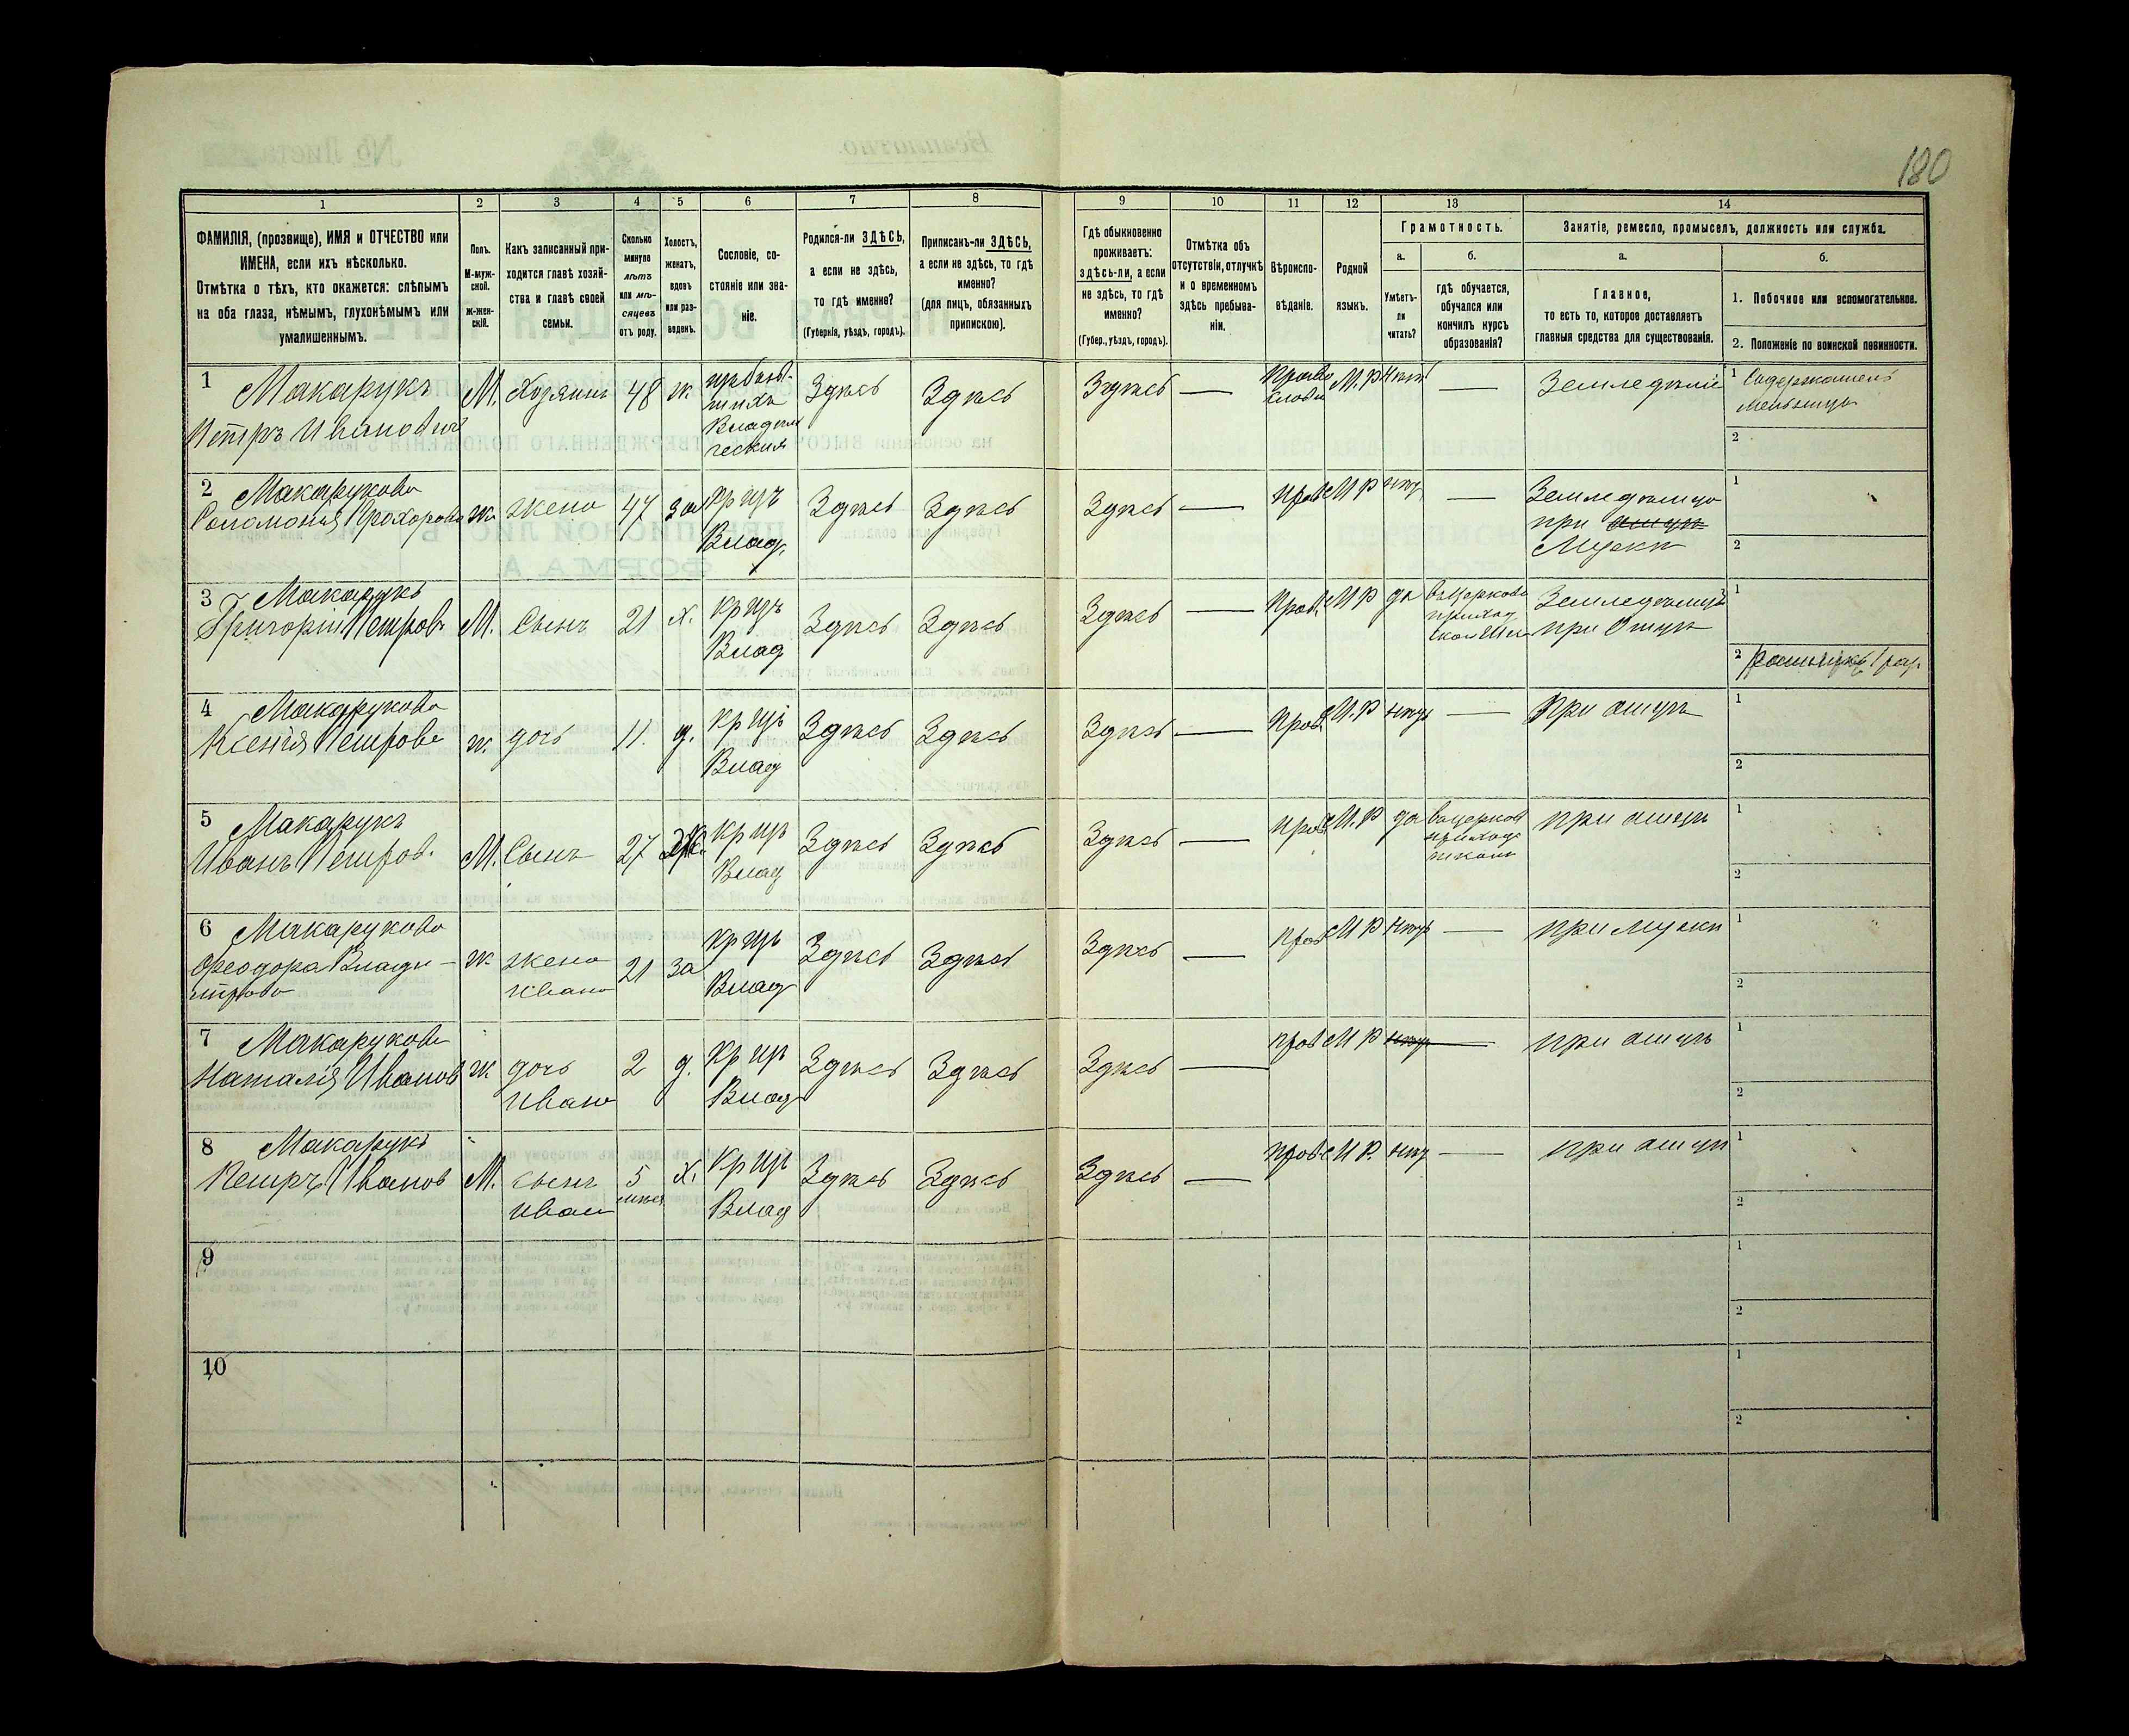 180
1 2 3 4 5 6 7 8 9 10 11 12 13 14
ФАМИЛІЯ, (прозвище), ИМЯ и ОТЧЕСТВО или
ИМЕНА, если ихъ нѣсколько.
Отмѣтка о тѣхъ, кто окажется: слѣпымъ
на оба глаза, нѣмымъ, глухонѣмымъ или
умалишеннымъ.
Полъ.
М-муж-
ской.
Ж-жен-
скій.
Какъ записанный при-
ходится главѣ хозяй-
ства и главѣ своей
семьи.
Сколько
минуло
лѣтъ
или мѣ-
сяцевъ
отъ роду.
Холостъ,
женатъ,
вдовъ
или раз-
веденъ.
Сословіе, со-
стояніе или зва-
ніе.
Родился-ли ЗДѢСЬ,
а если не здѣсь,
то гдѣ именно?
(Губернія, уѣздъ, городъ).
Приписанъ-ли ЗДѢСЬ,
а если не здѣсь, то гдѣ
именно?
(для лицъ, обязанныхъ
припискою).
Гдѣ обыкновенно
проживаетъ:
здѣсь-ли, а если
не здѣсь, то гдѣ
именно?
(Губер., уѣздъ, городъ).
Отмѣтка объ
отсутствіи, отлучкѣ
и о временномъ
здѣсь пребыва-
ніи.
Вѣроиспо-
вѣданіе.
Родной
языкъ.
Грамотность.
а.
Умѣетъ-
ли
читать?
б.
гдѣ обучается,
обучался или
кончилъ курсъ
образованія?
Занятіе, ремесло, промыселъ, должность или служба.
а.
Главное,
то есть то, которое доставляетъ
главныя средства для существованія.
б.
1. Побочное или вспомогательное.
2. Положеніе по воинской повинности.
1 Макарукъ
Петръ Ивановъ
М. Хозяинъ 48 ж.
Владѣль
ческихъ
Здѣсь Здѣсь Здѣсь —
Право
слов
М. Р нѣтъ — Земледѣліе
1 Содержатель
мельницы
2
2 Макарукова
Соломонія Прохорова
ж. жена 47 за
Кр изъ
Влад.
Здѣсь Здѣсь Здѣсь — прав М Р нѣт —
Земледѣлица
при
Мужѣ
1
2
3 Макарукъ
Григорій Петров.
М. Сынъ 21 х.
Кр изъ
Влад
Здѣсь Здѣсь Здѣсь — Прав. М Р да
въ церковно
приход
ской Шк
Земледѣлецъ
при Отцѣ
1
2
4 Макарукова
Ксенія Петрова
ж. дочь 11. д.
Кр изъ
Влад
Здѣсь Здѣсь Здѣсь — Прав. М. Р нѣт — При отцѣ
1
2
5 Макарукъ
Иванъ Петров.
М. Сынъ 27 Ж.
Кр изъ
Влад
Здѣсь Здѣсь Здѣсь — прав. М. Р да
въ церков
приход
школѣ
при отцѣ
1
2
6 Макарукова
Ѳеодора
ж. жена
Ивана
21 за
Кр изъ
Влад
Здѣсь Здѣсь Здѣсь — прав М Р нѣт — при мужѣ
1
2
7 Макарукова
Наталія Иванов
ж. дочь
Ивана
2 д.
Кр изъ
Влад
Здѣсь Здѣсь Здѣсь — прав М Р нѣт — при отцѣ
1
2
8 Макарукъ
Петръ Иванов
М. сынъ
Ивана
5
мѣся
х.
Кр изъ
Влад
Здѣсь Здѣсь Здѣсь — прав М Р. нѣт — при отцѣ
1
2
9
1
2
10
1
2